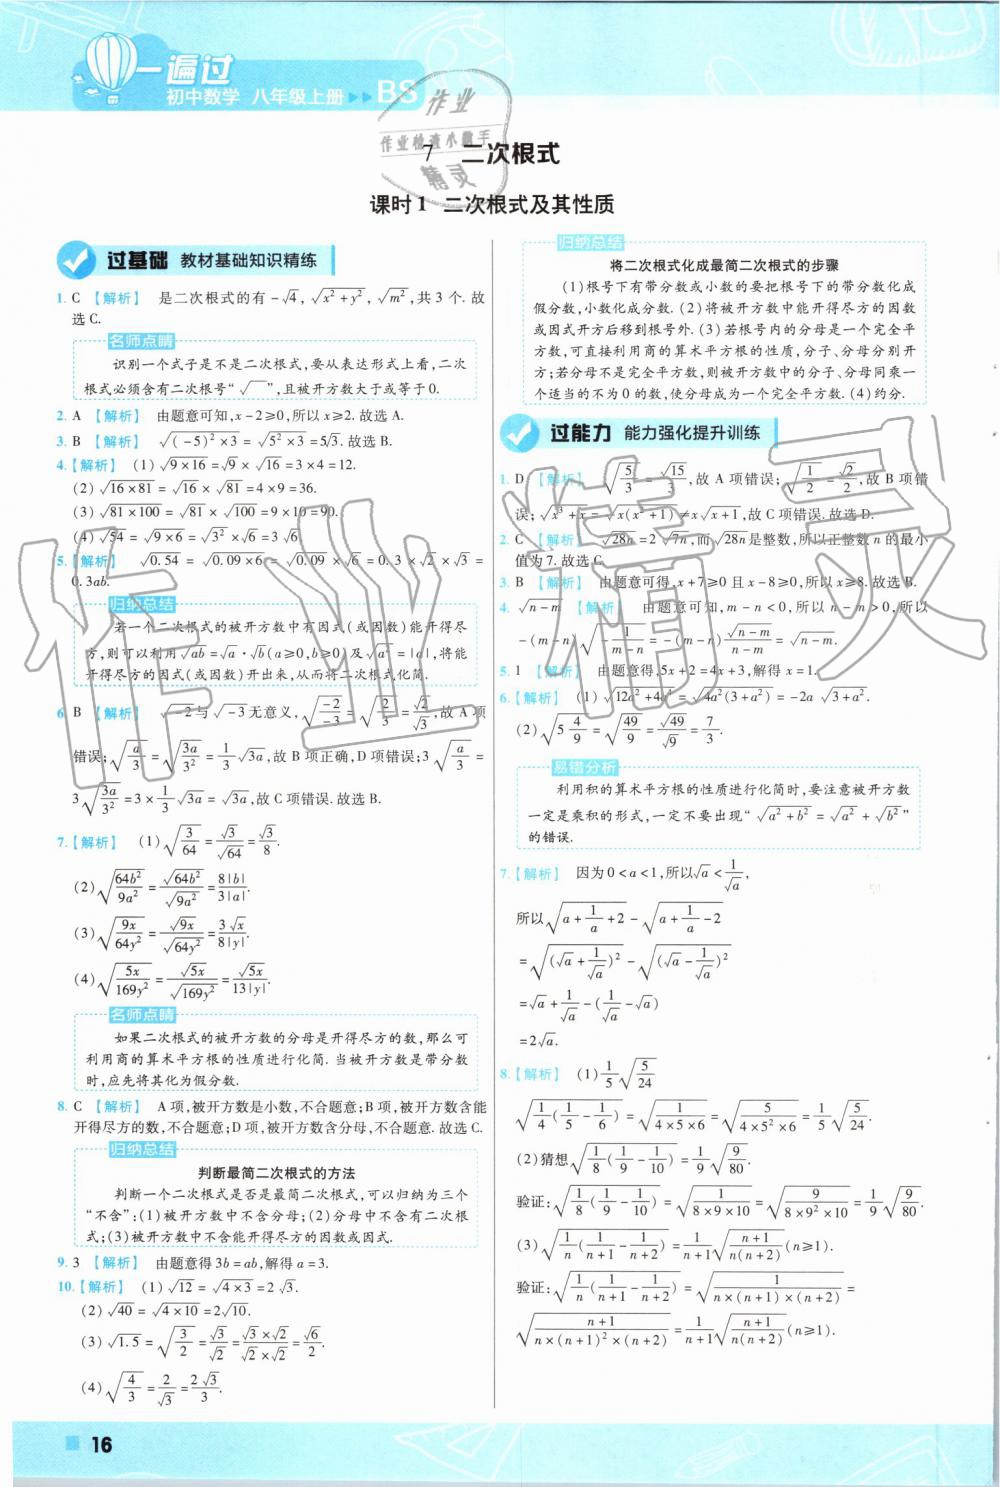 一遍过
初中数学 八年级上册 ▶▶ BS
作业
作业检查小助手
精灵
7 二次根式
课时1 二次根式及其性质
过基础 教材基础知识精练
1. C 【解析】 是二次根式的有 -√4, √(x²+y²), √(m²), 共 3 个. 故
选 C.
名师点睛
识别一个式子是不是二次根式,要从表达形式上看,二次
根式必须含有二次根号“√ ”,且被开方数大于或等于0.
2. A 【解析】 由题意可知, x-2≥0, 所以 x≥2. 故选 A.
3. B 【解析】 √((-5)²×3) = √(5²×3) = 5√3. 故选 B.
4. 【解析】 (1) √(9×16) = √9 × √16 = 3×4 = 12.
(2) √(16×81) = √16 × √81 = 4×9 = 36.
(3) √(81×100) = √81 × √100 = 9×10 = 90.
(4) √54 = √(9×6) = √(3²) × √6 = 3√6.
5. 【解析】 √0.54 = √(0.09×6) = √0.09 × √6 = 0.3×√2×√3 =
0.3ab.
归纳总结
若一个二次根式的被开方数中有因式(或因数)能开得尽
方,则可以利用√(ab)=√a·√b(a≥0,b≥0)及√(a²)=|a|,将能
开得尽方的因式(或因数)开出来,从而将二次根式化简.
6. B 【解析】 √-2 与 √-3 无意义, √(-2/-3) = √(2/3) = √2/√3, 故 A 项
错误; √(a/3) = √(3a/3²) = 1/3 √(3a), 故 B 项正确, D 项错误; 3√(a/3) =
3√(3a/3²) = 3×1/3 √(3a) = √(3a), 故 C 项错误. 故选 B.
7. 【解析】 (1) √(3/64) = √3/√64 = √3/8.
(2) √(64b²/9a²) = √(64b²)/√(9a²) = 8|b|/3|a|.
(3) √(9x/64y²) = √(9x)/√(64y²) = 3√x/8|y|.
(4) √(5x/169y²) = √(5x)/√(169y²) = √(5x)/13|y|.
名师点睛
如果二次根式的被开方数的分母是开得尽方的数,那么可
利用商的算术平方根的性质进行化简. 当被开方数是带分数
时,应先将其化为假分数.
8. C 【解析】 A 项,被开方数是小数,不合题意; B 项,被开方数含能
开得尽方的数,不合题意; D 项,被开方数含分母,不合题意. 故选 C.
归纳总结
判断最简二次根式的方法
判断一个二次根式是否是最简二次根式,可以归纳为三个
“不含”:(1)被开方数中不含分母;(2)分母中不含有二次根
式;(3)被开方数中不含能开得尽方的因数或因式.
9. 3 【解析】 由题意得 3b=ab, 解得 a=3.
10. 【解析】 (1) √12 = √(4×3) = 2√3.
(2) √40 = √(4×10) = 2√10.
(3) √1.5 = √(3/2) = √3/√2 = (√3×√2)/(√2×√2) = √6/2.
(4) √(4/3) = 2/√3 = 2√3/3.
归纳总结
将二次根式化成最简二次根式的步骤
(1)根号下有带分数或小数的要把根号下的带分数化成
假分数,小数化成分数. (2)将被开方数中能开得尽方的因数
或因式开方后移到根号外. (3)若根号内的分母是一个完全平
方数,可直接利用商的算术平方根的性质,分子、分母分别开
方;若分母不是完全平方数,则被开方数中的分子、分母同乘一
个适当的不为 0 的数,使分母成为一个完全平方数. (4)约分.
过能力 能力强化提升训练
1. D 【解析】 √(5/3) = √15/3, 故 A 项错误; √(1/2) = √2/2, 故 B 项错
误; √(x³+x) = √(x(x²+1)) ≠ x√(x+1), 故 C 项错误. 故选 D.
2. C 【解析】 √(28n) = 2√(7n), 而 √(28n) 是整数, 所以正整数 n 的最小
值为 7. 故选 C.
3. B 【解析】 由题意可得, x+7≥0 且 x-8≥0, 所以 x≥8. 故选 B.
4. √(n-m) 【解析】 由题意可知, m-n<0, 所以 n-m>0, 所以
-(m-n)√(-1/(m-n)) = -(m-n)√(n-m)/(n-m) = √(n-m).
5. 1 【解析】 由题意得, 5x+2=4x+3, 解得 x=1.
6. 【解析】 (1) √(12a²+4a⁴) = √(4a²(3+a²)) = -2a √(3+a²).
(2) √(5 4/9) = √(49/9) = √49/√9 = 7/3.
易错分析
利用积的算术平方根的性质进行化简时,要注意被开方数
一定是乘积的形式,一定不要出现“√(a²+b²) = √(a²) + √(b²)”
的错误.
7. 【解析】 因为 0<a<1, 所以 √a < 1/√a,
所以 √(a+1/a+2) - √(a+1/a-2)
= √((√a+1/√a)²) - √((√a-1/√a)²)
= √a + 1/√a - (1/√a - √a)
= 2√a.
8. 【解析】 (1) 1/5 √(5/24)
√(1/4(1/5-1/6)) = √(1/(4×5×6)) = √(5/(4×5²×6)) = 1/5 √(5/24).
(2) 猜想 √(1/8(1/9-1/10)) = 1/9 √(9/80).
验证: √(1/8(1/9-1/10)) = √(1/(8×9×10)) = √(9/(8×9²×10)) = 1/9 √(9/80).
(3) √(1/n(1/(n+1)-1/(n+2))) = 1/(n+1) √((n+1)/(n(n+2))) (n≥1).
验证: √(1/n(1/(n+1)-1/(n+2))) = √(1/(n×(n+1)×(n+2))) =
√((n+1)/(n×(n+1)²×(n+2))) = 1/(n+1) √((n+1)/(n(n+2))) (n≥1).
作业精灵
16